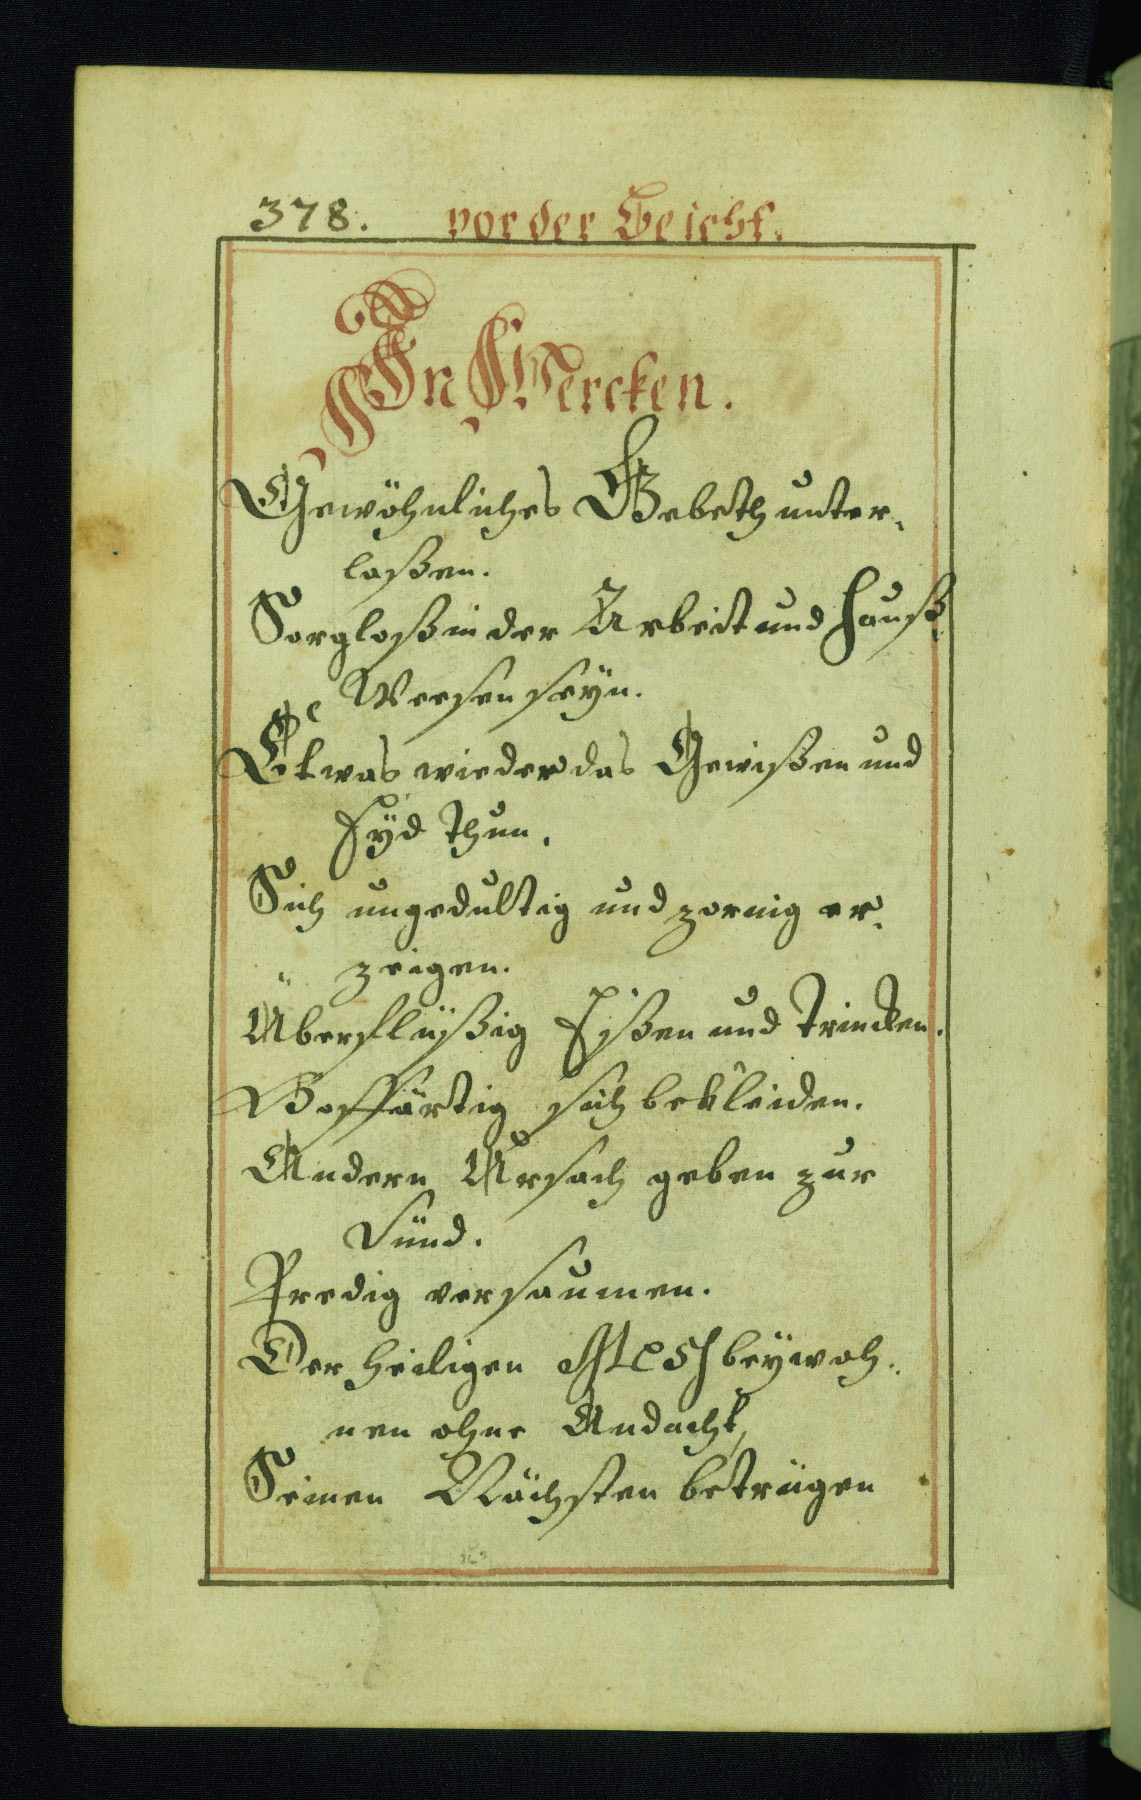 378. vor der Beicht.
In Wercken.
Gewöhnliches Gebeth unter-
laßen.
Sorgloß in der Arbeit und Hauß-
Weesen seÿn.
Etwas wieder das Gewißen und
Eÿd thun.
Sich ungedultig und zornig er-
zeigen.
Überflüßig Eßen und Trincken.
Hoffärtig sich bekleiden.
Andern Ursach geben zur
Sünd.
Predig versaumen.
Der heiligen Mesß beÿwoh-
nen ohne Andacht,
Seinen Nächsten betrügen